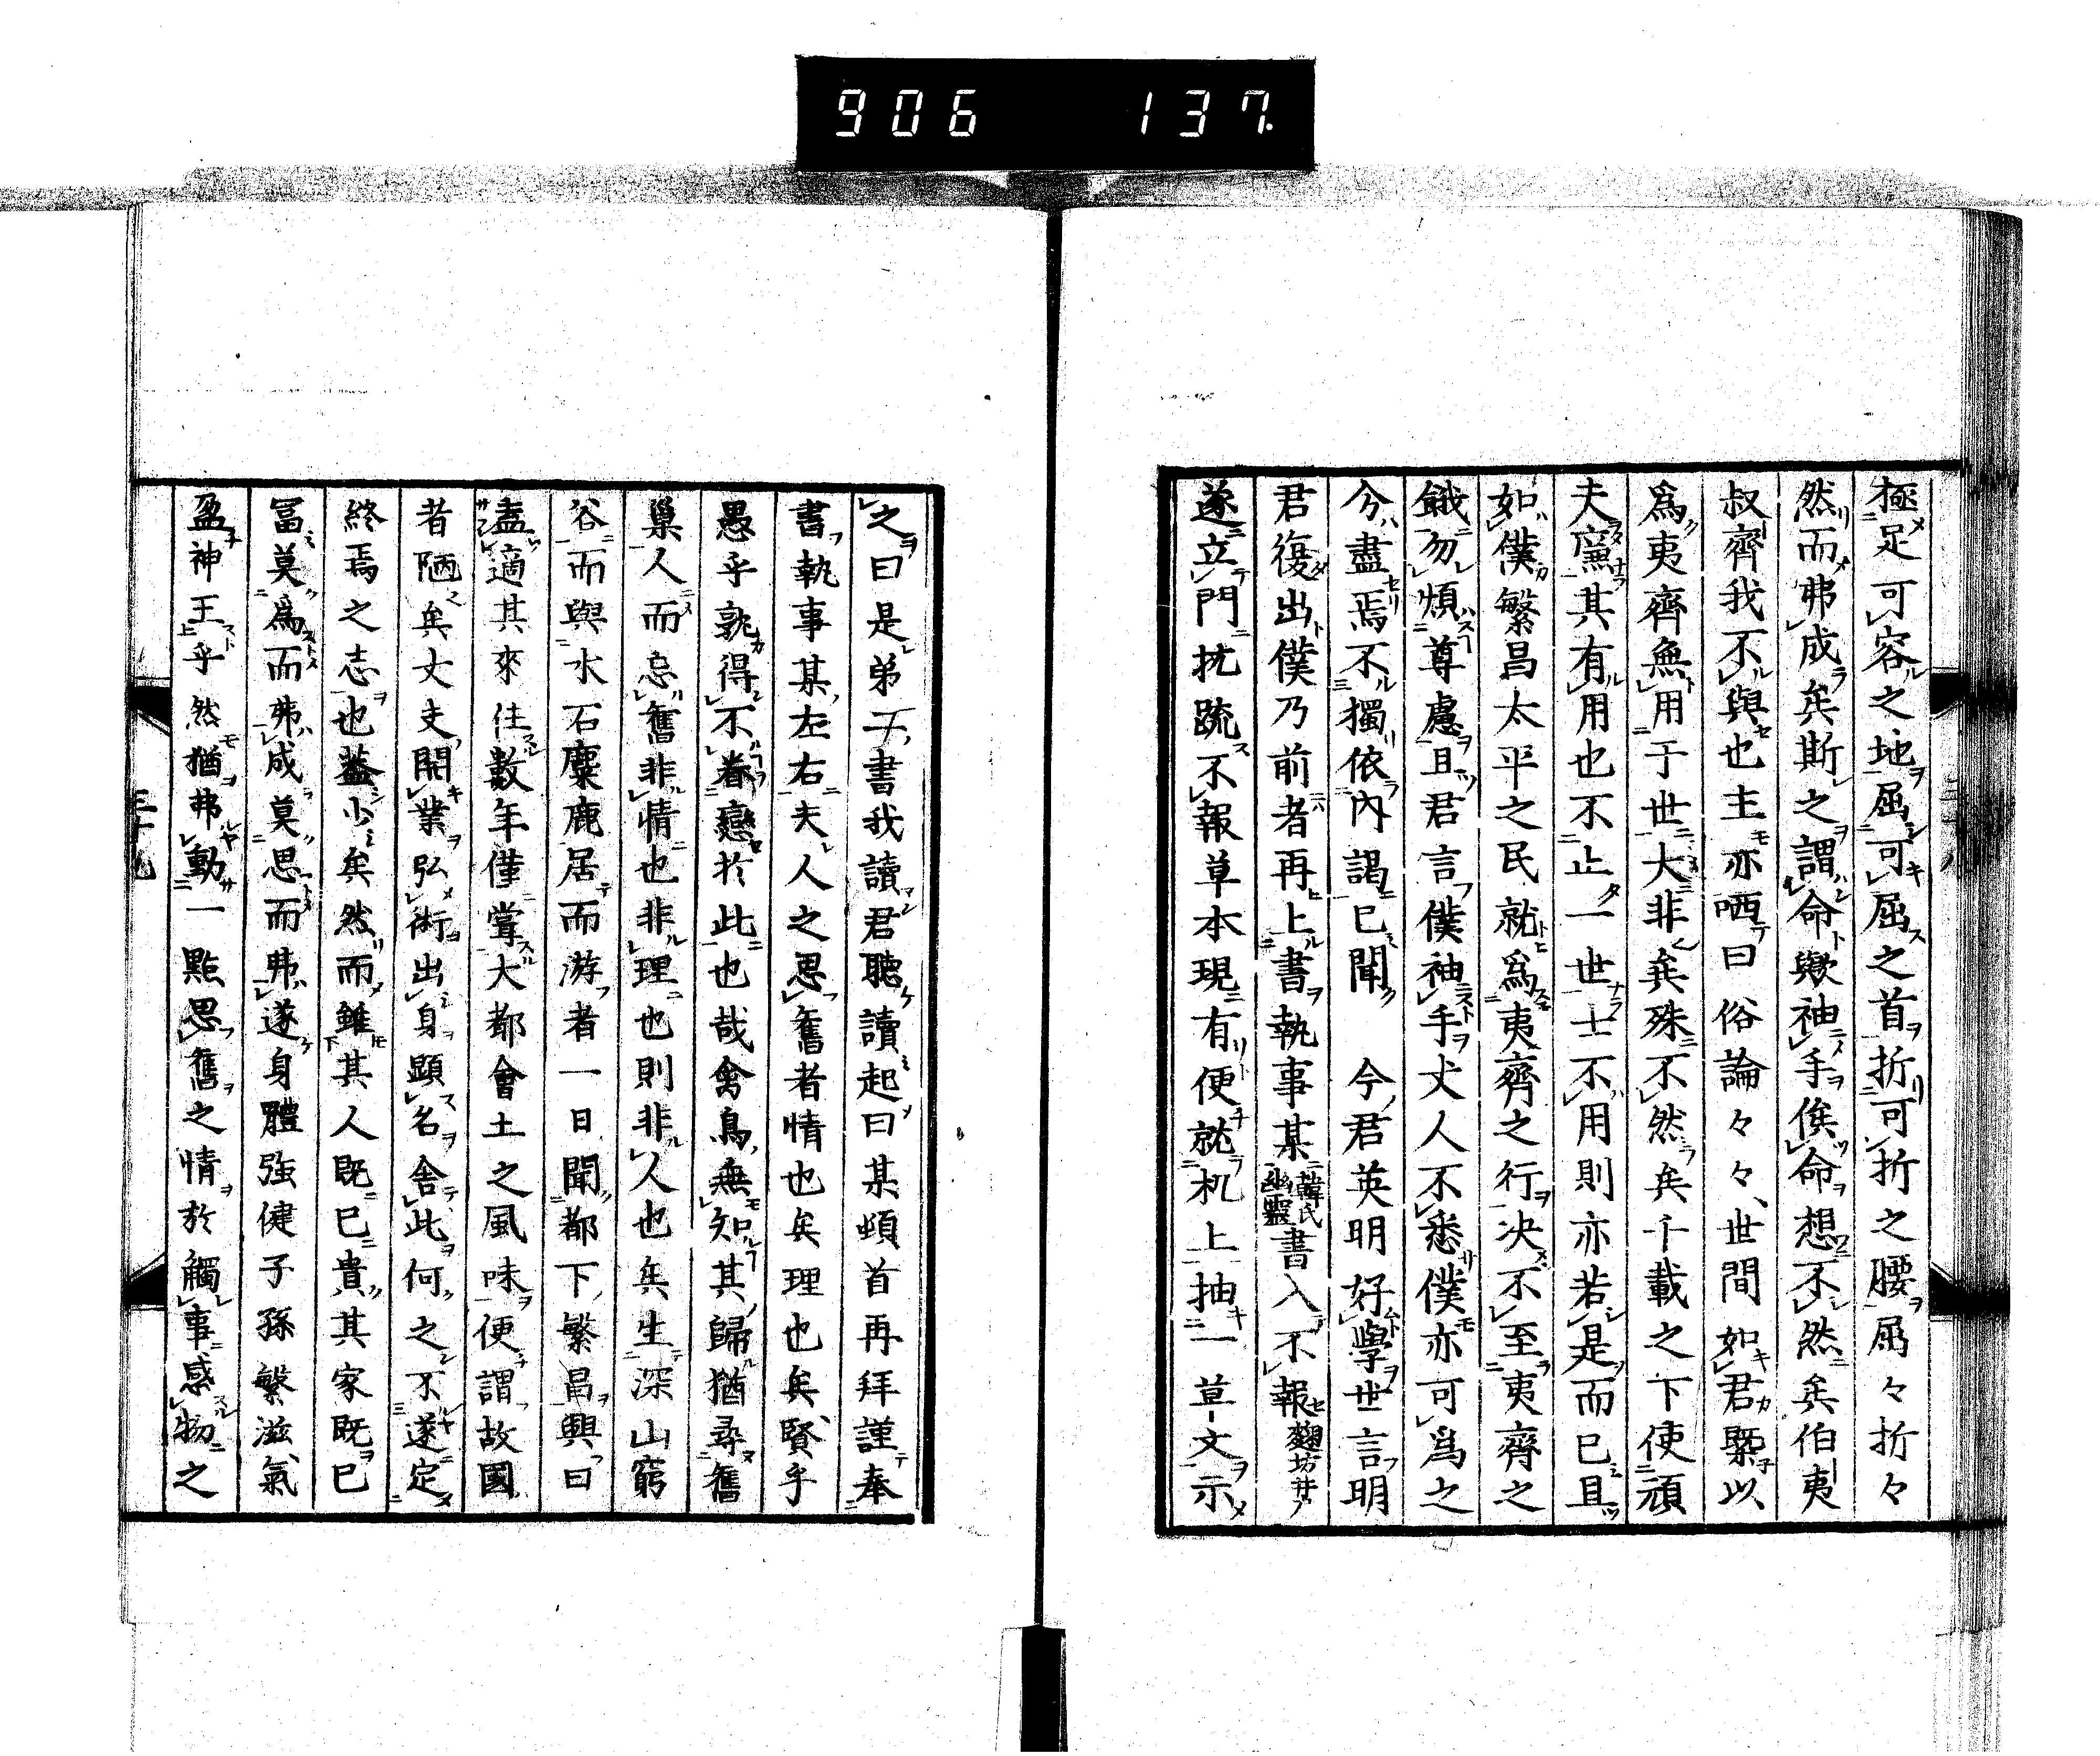 906 137
極足可容之地屈可屈之首折可折之腰屈々折々
然而弗成矣斯之謂命歟袖手俟命想不然矣伯夷
叔齊我不與也主亦哂曰俗論々々世間如君槩以
爲夷齊無用于世大非矣殊不然矣千載之下使頑
夫廉其有用也不止一世士不用則亦若是而已且
如僕繁昌太平之民就爲夷齊之行決不至夷齊之
餓勿煩尊慮且君言僕袖手丈人不悉僕亦可爲之
今盡焉不獨依内謁已聞 今君英明好學世言明
君復出僕乃前者再上書執事某韓氏幽靈書入不報麹坊井ノ
遂立門抗疏不報草本現有便就机上抽一草文示
之曰是弟子書我讀君聽讀起曰某頓首再拜謹奉
書執事某左右夫人之思舊者情也矣理也矣賢乎
愚乎孰得不眷戀於此也哉禽鳥無知其歸猶尋舊
巢人而忘舊非情也非理也則非人也矣生深山窮
谷而與水石麋鹿居而游者一日聞都下繁昌興曰
盍適其來住數年僅嘗大都會土之風味便謂故國
者陋矣丈夫開業弘術出身顯名舍此何之不遂定
終焉之志也葢少矣然而雖其人既已貴其家既已
冨莫爲而弗成莫思而弗遂身體強健子孫繁滋氣
盈神王乎然猶弗動一點思舊之情於觸事感物之